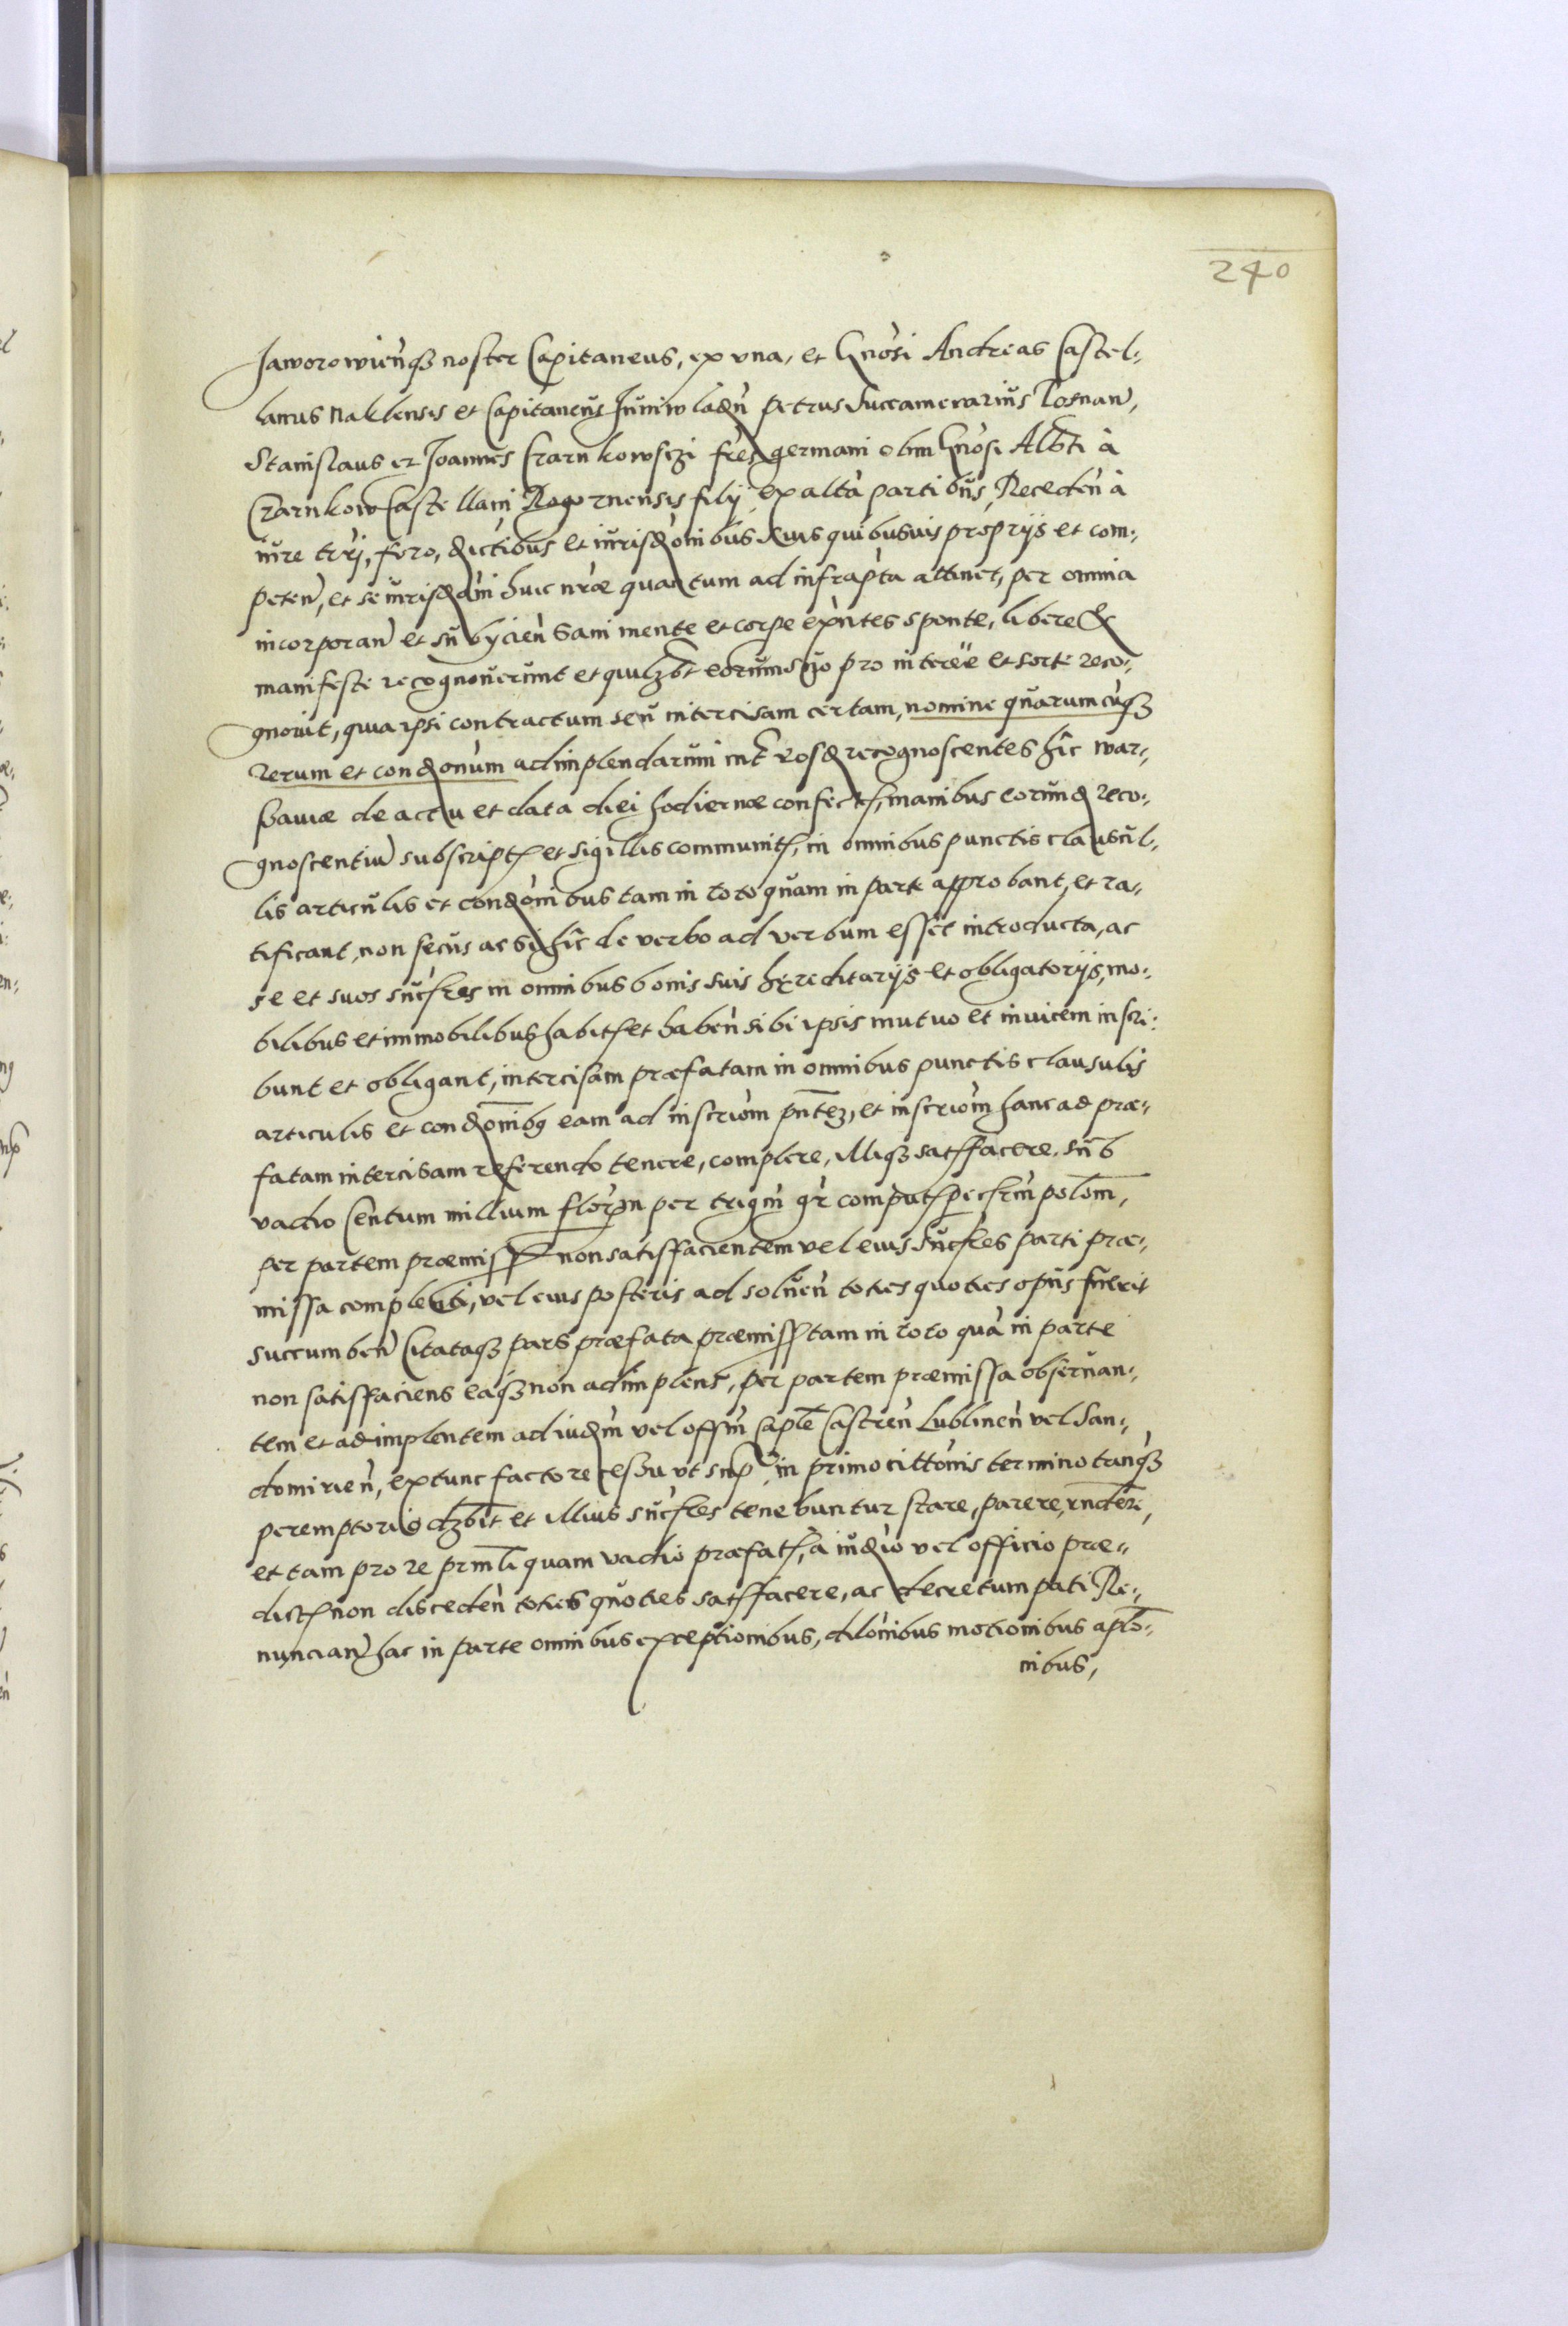 240
Jaworowien̄q₃ noster Capitaneus, ex vna, et Gnosi Andreas Castel-
lanus Naklensis et Capitaneus Juniwladn̄ Petrus Succamerarius Posnan̄,
Stanislaus et Joannes Czarnkowsczi fres germani olim Gnosi Albti à
Czarnkow Castellani Rogoznensis filij ex altà partibus, Receden̄ à
iure trrj, foro, dictibus et iurisdonibus suis quibusuis proprijs et com-
peten̄, et se iurisdoni huic nr̄æ quantum ad infrapta attinet, per omnia
incorporan̄ et subycien̄ sani mente et corpe exn̄tes sponte, libere &
manifeste recognouerunt et quilzbt eorum suo pro interēe et sorte reco-
gnouit, quia ipsi contractum seu intercisam certam, nomine quarumcuq₃
rerum et condonum adimplendarum int̄ eosd recognoscentes hîc War-
sauiæ de actu et data diei hodiernæ confect, manibus eorund reco-
gnoscentiū subscript et sigillis communit, in omnibus punctis clausul-
lis articulis et condonibus tam in toto quam in parte approbant, et ra-
tificant, non secus ac si hîc de verbo ad verbum esset introducta, ac
se et suos sucsres in omnibus bonis suis hæreditarijs et obligatorijs, mo-
bilibus et immobilibus habit et haben̄ sibi ipsis mutuo et inuicem inscri-
bunt et obligant, intercisam præfatam in omnibus punctis clausulis
articulis et condonib₉ eam ad inscriōm pn̄te₃, et inscriōm hanc ad præ-
fatam intercisam referendo tenere, complere, illiq₃ satffacere. sub
vadio Centum millium florm per trigm̄ gr̄ computs pec frm̄ polom̄,
per partem præmiss non satisfacientem vel eius sucsres parti præ-
missa complenti, vel eius posteris ad soluen̄ toties quoties opus fuerit
succumben̄ Citataq₃ pars præfata præmiss tam in toto quā in parte
non satisfaciens eaq₃ non adimplens, per partem præmissa obseruan-
tem et adimplentem ad iudm̄ vel offm̄ Caple Castren̄ Lublinen̄ vel San-
domirien̄, extunc facto recessu vt sup in primo cittonis termino tanq₃
peremptorio dzbit et illius sucsres tenebuntur stare, parere, rn̄dere,
et tam pro re prn̄li quam vadio præfat, à iudio vel officio præ-
dict non disceden̄ toties quoties satffacere, ac decretum pati Re-
nuncian̄ hac in parte omnibus exceptionibus, dilonibus motionibus aplo-
nibus,